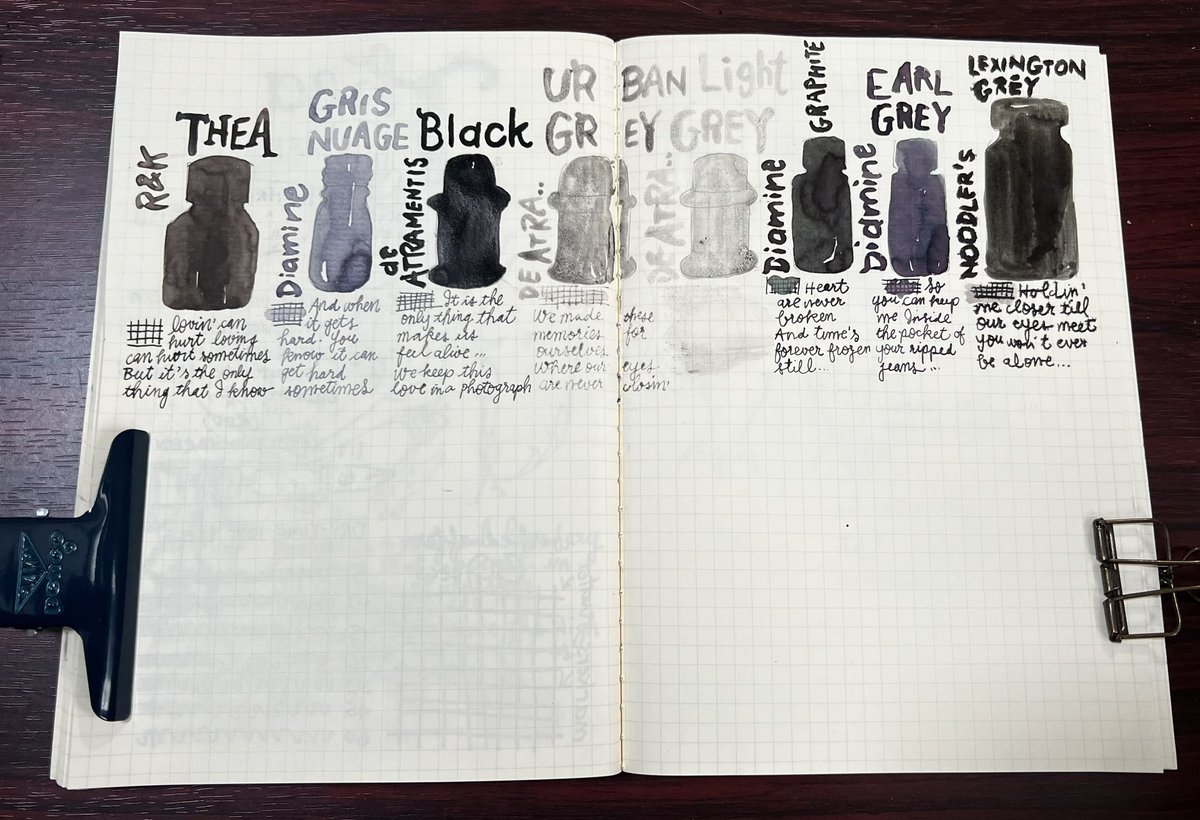 R&K
THEA
lovin' can
hurt loving
can hurt sometimes
But it's the only
thing that I know
Diamine
GRIS
NUAGE
And when
it gets
hard. You
know it can
get hard
sometimes
de
ATRAMENTIS
Black
It is the
only thing that
makes us
feel alive...
we keep this
love in a photograph
DE ATRA..
URBAN
GREY
We made these
memories for
ourselves
Where our eyes
are never closin'
DE ATRA..
Light
GREY
Diamine
GRAPHITE
Heart
are never
broken
And time's
forever frozen
still...
Diamine
EARL
GREY
So
you can keep
me Inside
the pocket of
your ripped
jeans...
NOODLER'S
LEXINGTON
GREY
Holdin'
me closer till
our eyes meet
you won't ever
be alone...